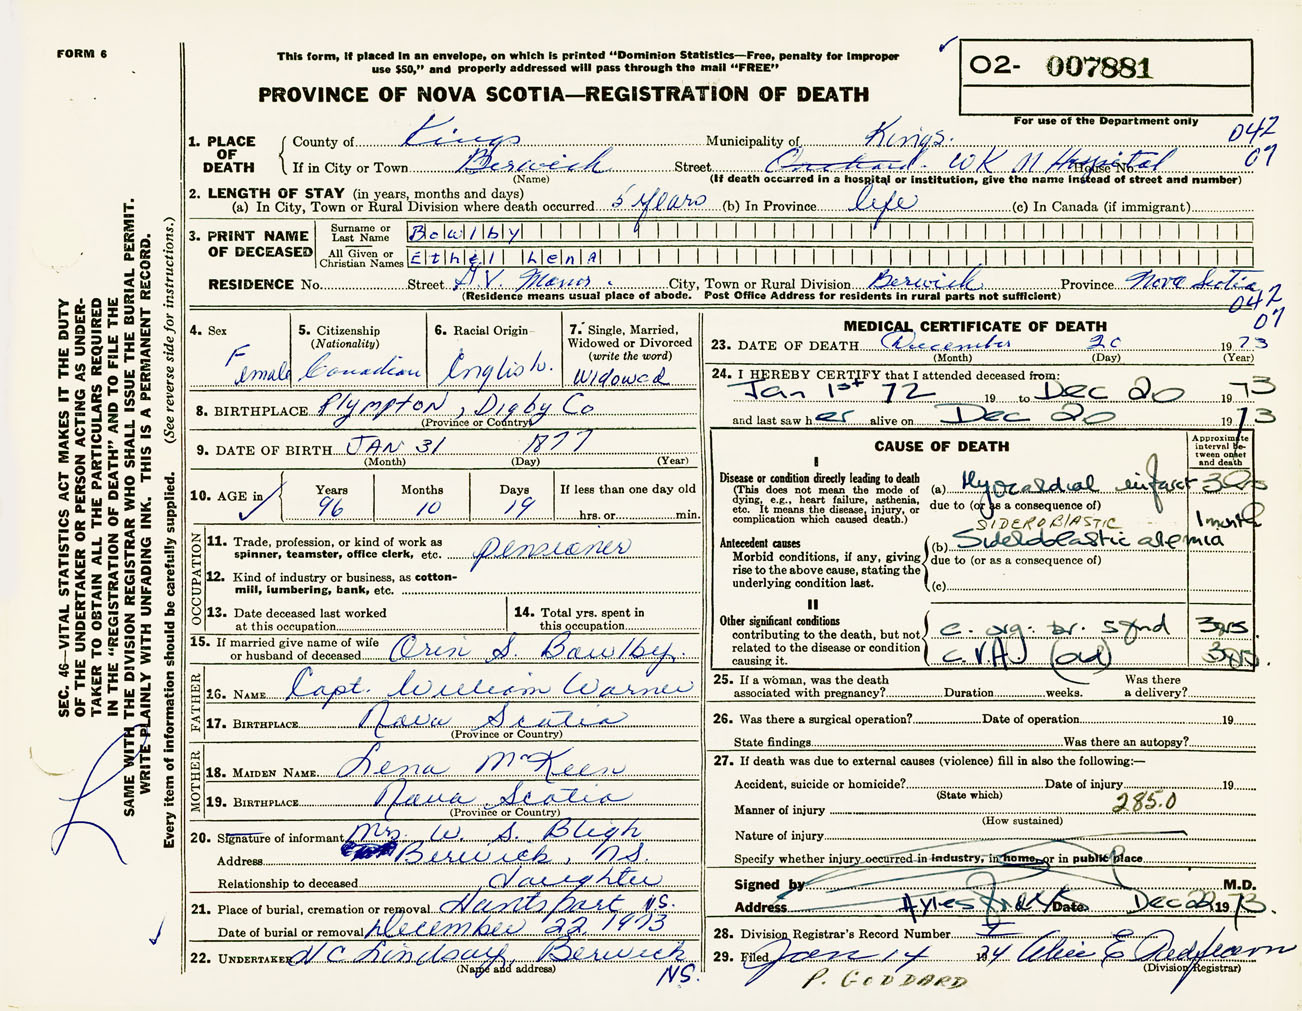 FORM 6
This form, if placed in an envelope, on which is printed "Dominion Statistics—Free, penalty for improper
use $50," and properly addressed will pass through the mail "FREE"
PROVINCE OF NOVA SCOTIA—REGISTRATION OF DEATH
02- 007881
For use of the Department only
042
07
1. PLACE OF DEATH
County of Kings Municipality of Kings.
If in City or Town Berwick Street Orchard. W K M Hospital House No.
(Name) (If death occurred in a hospital or institution, give the name instead of street and number)
2. LENGTH OF STAY (in years, months and days)
(a) In City, Town or Rural Division where death occurred 5 years (b) In Province life (c) In Canada (if immigrant)
3. PRINT NAME OF DECEASED
Surname or Last Name Bowlby
All Given or Christian Names Ethel LenA
RESIDENCE No. Street G.V. Manor. City, Town or Rural Division Berwick Province Nova Scotia
(Residence means usual place of abode. Post Office Address for residents in rural parts not sufficient)
042
07
4. Sex Female
5. Citizenship (Nationality) Canadian
6. Racial Origin English.
7. Single, Married, Widowed or Divorced (write the word) Widowed
8. BIRTHPLACE Plympton, Digby Co
(Province or Country)
9. DATE OF BIRTH JAN 31 1877
(Month) (Day) (Year)
10. AGE in Years 96 Months 10 Days 19 If less than one day old hrs. or min.
OCCUPATION
11. Trade, profession, or kind of work as spinner, teamster, office clerk, etc. pensioner
12. Kind of industry or business, as cotton-mill, lumbering, bank, etc.
13. Date deceased last worked at this occupation
14. Total yrs. spent in this occupation
15. If married give name of wife or husband of deceased Orin S. Bowlby.
FATHER
16. NAME Capt. William Warner
17. BIRTHPLACE Nova Scotia
(Province or Country)
MOTHER
18. MAIDEN NAME Lena McKeen
19. BIRTHPLACE Nova Scotia
(Province or Country)
20. Signature of informant Mrs. W. S. Bligh
Address Berwick, NS.
Relationship to deceased daughter
21. Place of burial, cremation or removal Hantsport N.S.
Date of burial or removal December 22 1973
22. UNDERTAKER H C Lindsay, Berwick
(Name and address) NS.
MEDICAL CERTIFICATE OF DEATH
23. DATE OF DEATH December 20 1973
(Month) (Day) (Year)
24. I HEREBY CERTIFY that I attended deceased from:
Jan 1st 72 19 to Dec 20 1973
and last saw her alive on Dec 20 1973
CAUSE OF DEATH
Approximate interval between onset and death
I
Disease or condition directly leading to death
(This does not mean the mode of dying, e.g., heart failure, asthenia, etc. It means the disease, injury, or complication which caused death.)
(a) Myocardial infarct
due to (or as a consequence of)
SIDEROBLASTIC 1 month
Antecedent causes
Morbid conditions, if any, giving rise to the above cause, stating the underlying condition last.
(b) Sideroblastic anemia
due to (or as a consequence of)
(c)
II
Other significant conditions
contributing to the death, but not related to the disease or condition causing it.
c. org. br. synd 3yrs
C.V.A. (old) 3yrs.
25. If a woman, was the death associated with pregnancy? Duration weeks. Was there a delivery?
26. Was there a surgical operation? Date of operation 19
State findings Was there an autopsy?
27. If death was due to external causes (violence) fill in also the following:—
Accident, suicide or homicide? Date of injury 19
(State which)
285.0
Manner of injury
(How sustained)
Nature of injury
Specify whether injury occurred in industry, in home, or in public place
Signed by M.D.
Address Date Dec 22 1973.
28. Division Registrar's Record Number
29. Filed Jan 14 1974 Alice E
(Division Registrar)
P. GODDARD
SEC. 46—VITAL STATISTICS ACT MAKES IT THE DUTY
OF THE UNDERTAKER OR PERSON ACTING AS UNDER-
TAKER TO OBTAIN ALL THE PARTICULARS REQUIRED
IN THE "REGISTRATION OF DEATH" AND TO FILE THE
SAME WITH THE DIVISION REGISTRAR WHO SHALL ISSUE THE BURIAL PERMIT.
WRITE PLAINLY WITH UNFADING INK. THIS IS A PERMANENT RECORD.
Every item of information should be carefully supplied. (See reverse side for instructions.)